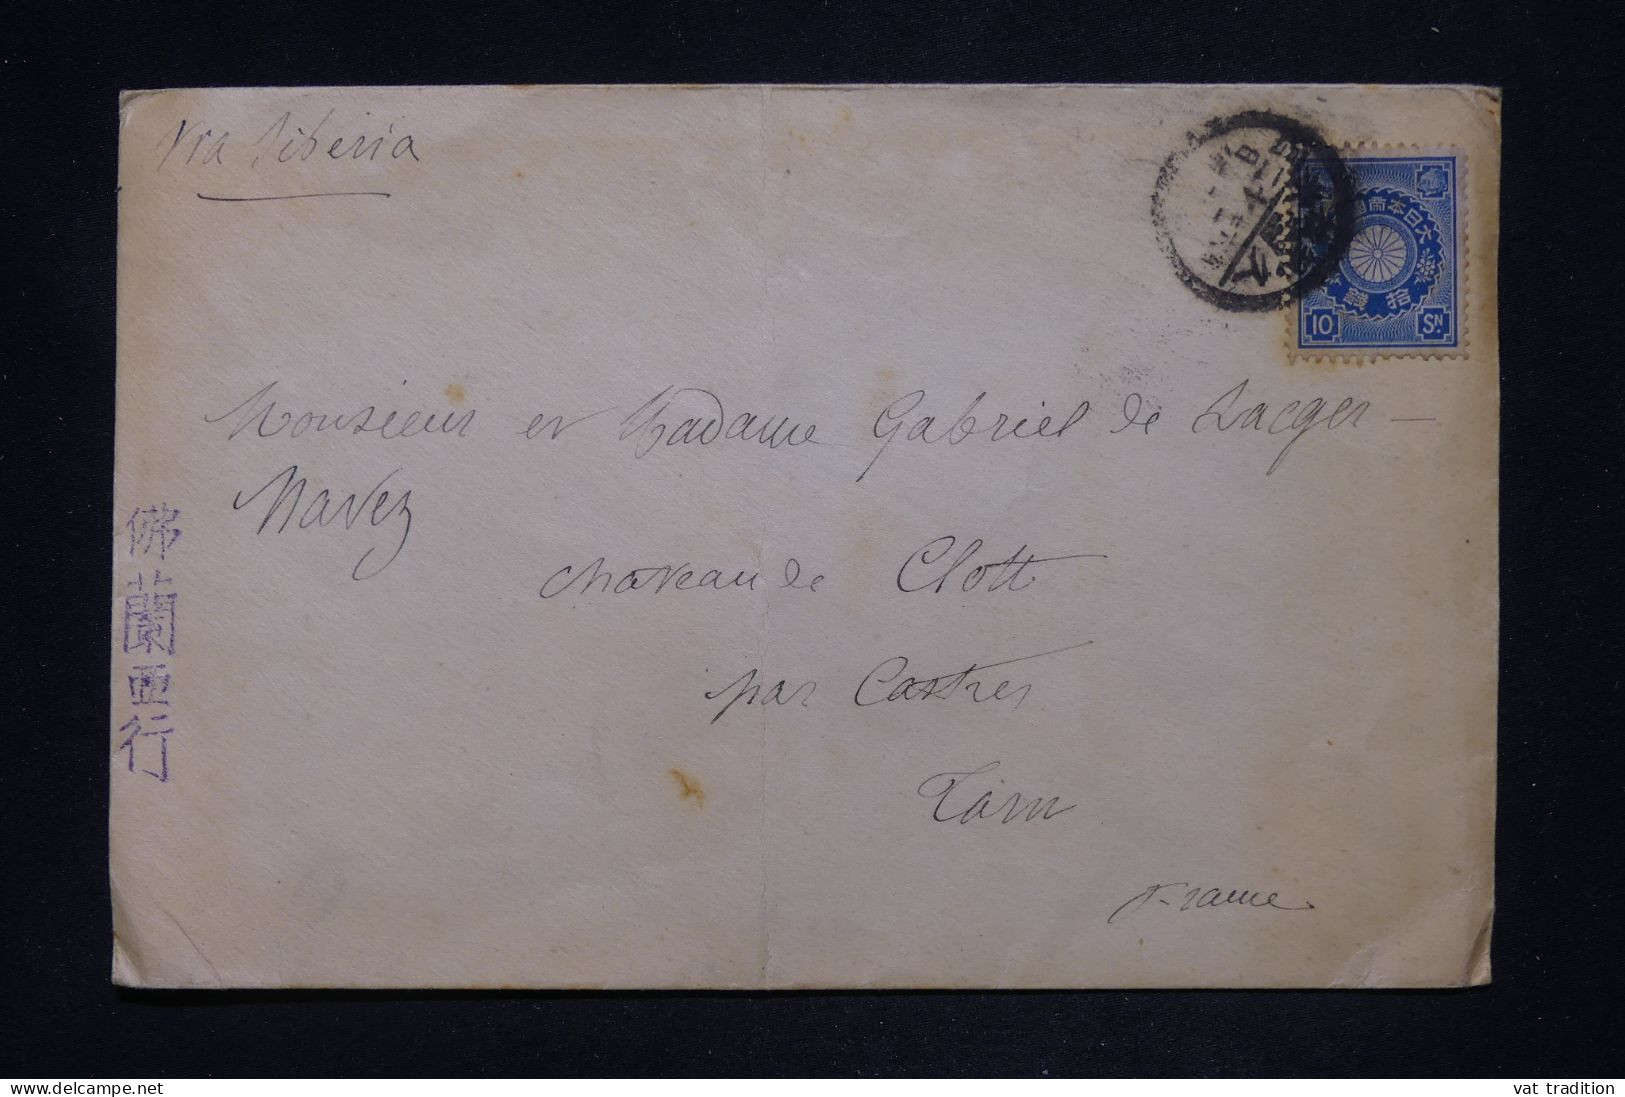 Via Siberia
大日本帝國
拾錢
10 Sⁿ.
Monsieur et Madame Gabriel de Lacger –
Navez
chateau de Clott
par Castres
Tarn
France.
佛蘭西行
www.delcampe.net
vat tradition